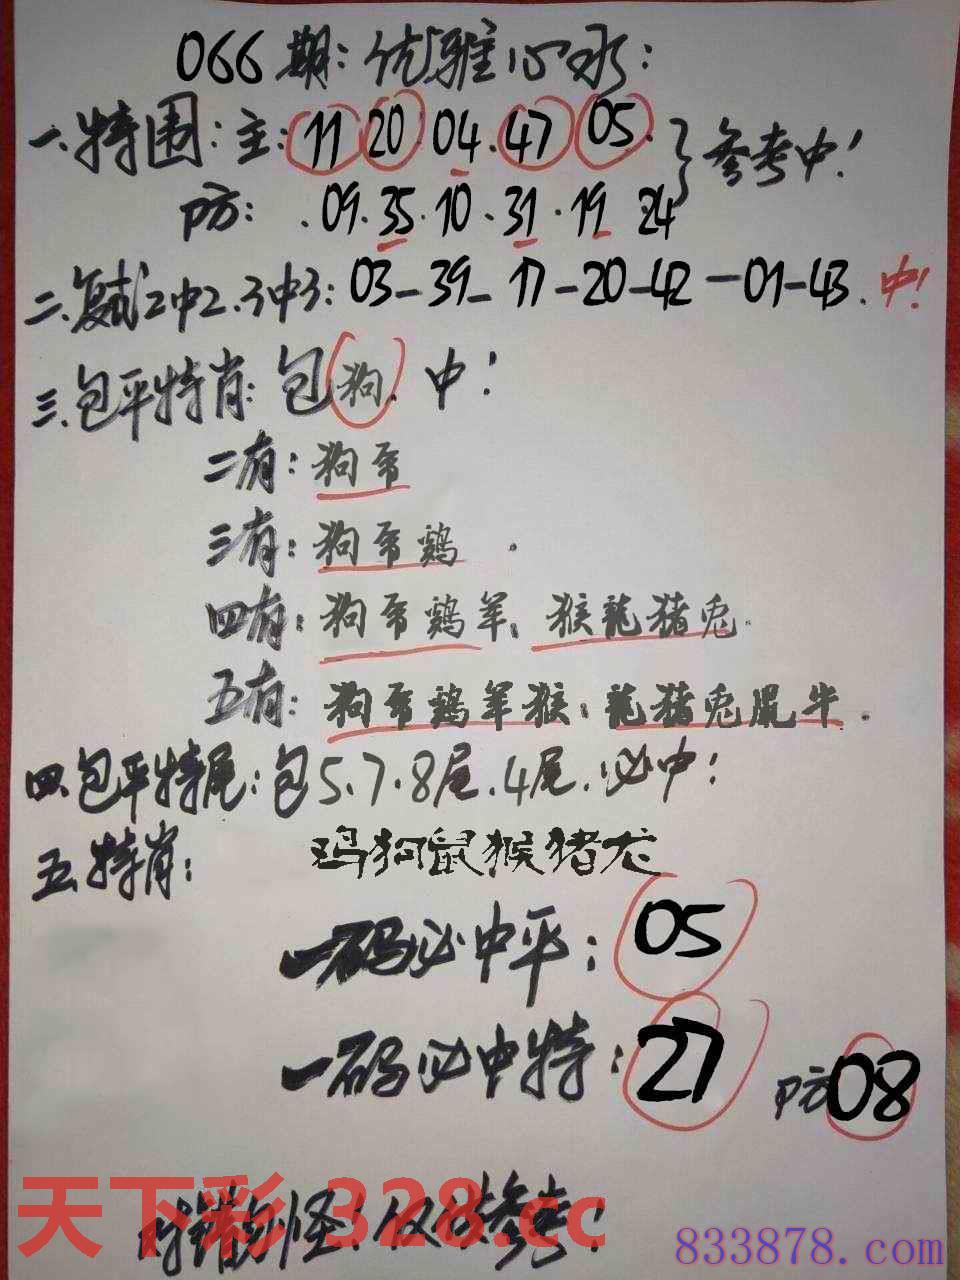 066期:优雅心水:
一.特围:主:11 20 04.47 05.
参考中!
防:.09.35.10.31.19 24
二.复式2中2.3中3:03-39-17-20-42-01-43.中!
三.包平特肖:包狗.中!
二有:狗
三有:狗 鸡.
四有:狗 鸡羊.猴龍猪兔.
五有:狗 鸡羊猴:龍猪兔鼠牛.
四.包平特尾:包5.7.8尾.4尾.必中!
五.特肖:鸡狗鼠猴猪龙
一码必中平:05
一码必中特:27 防08
天下彩 328.cc
错勿怪!仅供参考!
833878.com